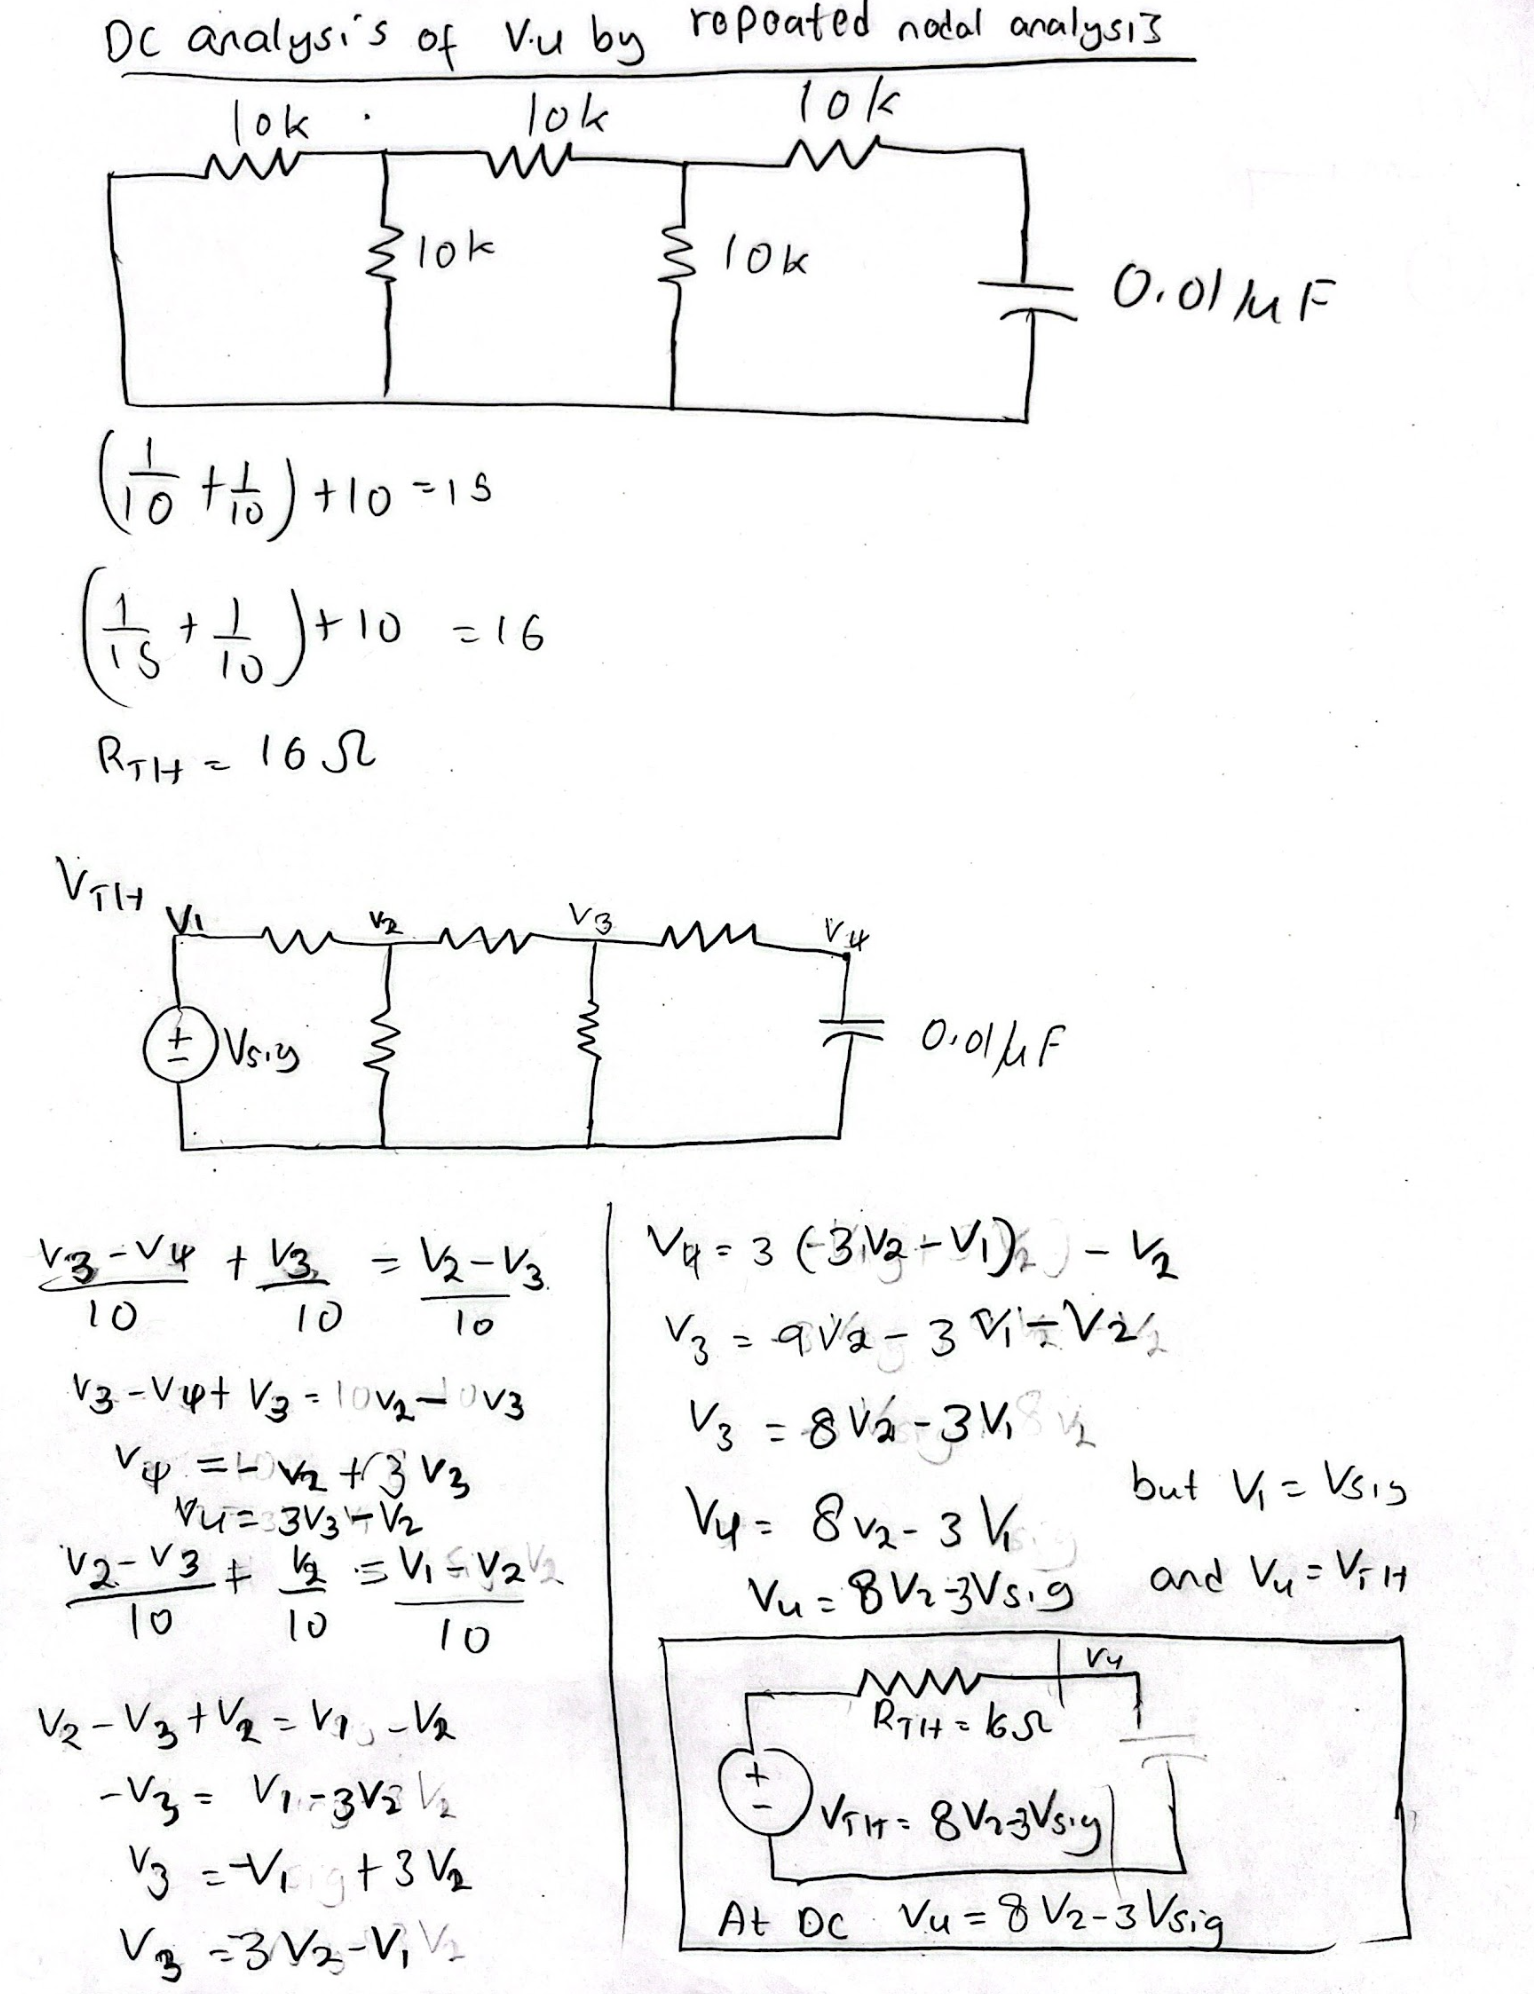 DC analysis of V.u by repeated nodal analysis
10k 10k 10k
10k 10k 0.01μF
(1/10 + 1/10) + 10 = 15
(1/15 + 1/10) + 10 = 16
RTH = 16Ω
VTH
V1 V2 V3 V4
+ − Vsig 0.01μF
(V3-V4)/10 + V3/10 = (V2-V3)/10
V3-V4+V3 = V2-V3
V4 = -V2+3V3
V4 = 3V3-V2
(V2-V3)/10 + V2/10 = (V1-V2)/10
V2-V3+V2 = V1-V2
-V3 = V1-3V2
V3 = -V1+3V2
V3 = 3V2-V1
V4 = 3(3V2-V1) - V2
V3 = 9V2-3V1-V2
V3 = 8V2-3V1
V4 = 8V2-3V1
but V1 = Vsig
V4 = 8V2-3Vsig
and V4 = VTH
V4
RTH = 16Ω
+ −
VTH = 8V2-3Vsig
At DC V4 = 8V2-3Vsig